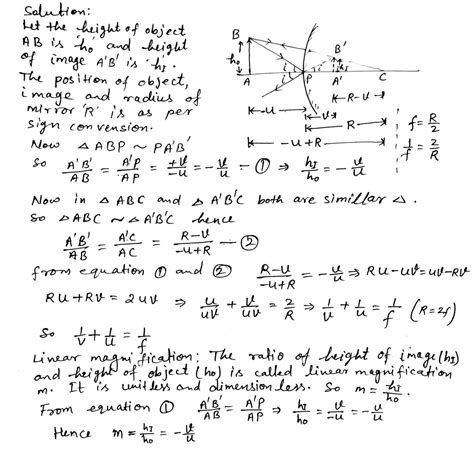 Solution:
Let the height of object
AB is 'ho' and height
of image A'B' is 'hI'.
The position of object,
image and radius of
mirror 'R' is as per
sign convension.
Now △ABP ~ PA'B'
So A'B'/AB = A'P/AP = +v/-u = -v/u — ① ⇒ hI/ho = -v/u
B
ho
A
i
P
B'
hI
A'
C
R-v
-u
v
R
-u+R
f = R/2
1/f = 2/R
Now in △ABC and △A'B'C both are simillar △.
So △ABC ~ △A'B'C hence
A'B'/AB = A'C/AC = R-v/-u+R — ②
from equation ① and ② R-v/-u+R = -v/u ⇒ Ru-uv=uv-Rv
Ru+Rv = 2uv ⇒ u/uv + v/uv = 2/R ⇒ 1/v + 1/u = 1/f (R=2f)
So 1/v + 1/u = 1/f
Linear magnification: The ratio of height of image (hI)
and height of object (ho) is called linear magnification
m. It is unitless and dimensionless. So m = hI/ho.
From equation ① A'B'/AB = A'P/AP ⇒ hI/ho = v/-u = -v/u
Hence m = hI/ho = -v/u